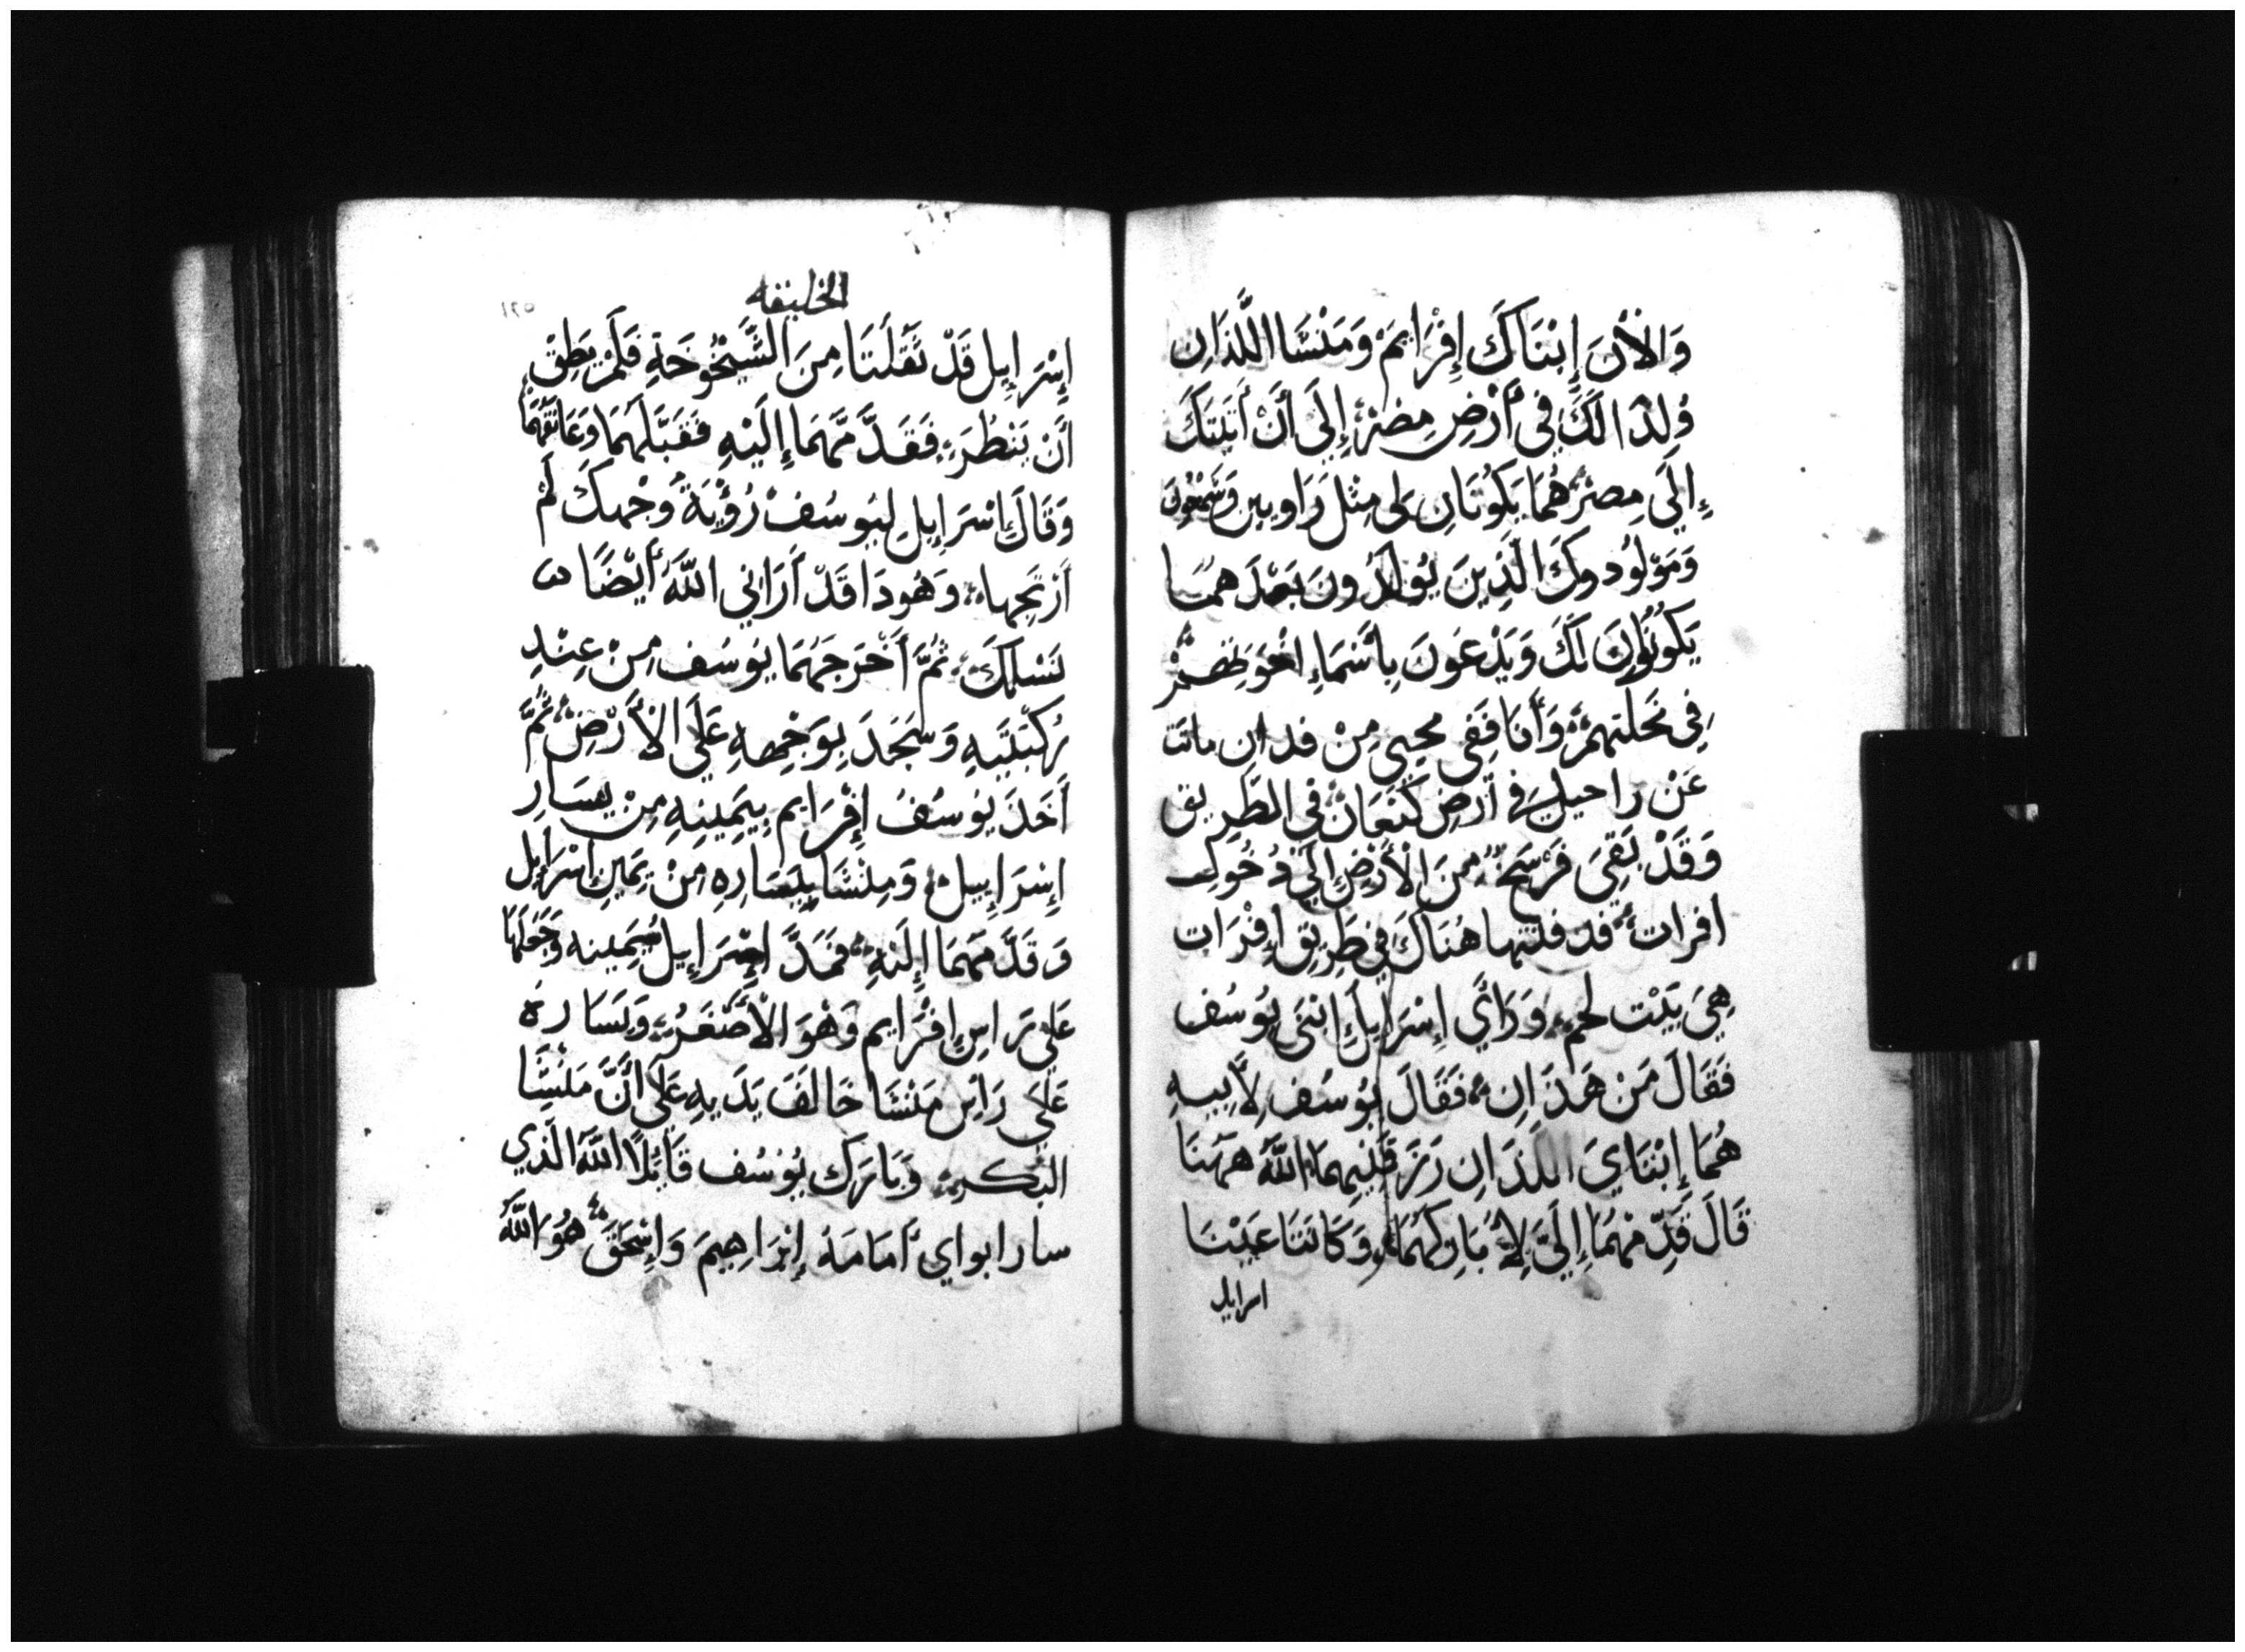 وَالْأَنَ إِبْنَاكَ إِفْرَايِمْ وَمَنْسَّا اللَّذَانِ
وُلِدَا لَكَ فِي أَرْضِ مِصْرَ إِلَى أَنْ أَتَيْتُكَ
إِلَى مِصْرَ هُمَا يَكُونَانِ لِي مِثْلَ رَاوبِين وَشَمْعُونَ
وَمَوْلُودوكَ الَّذِينَ يُولَدُونَ بَعْدَهمَا
يَكُونُونَ لَكَ وَيُدْعَوْنَ بِأَسْمَاءِ اخْوَتِهِمْ
فِي نَحْلَتِهِمْ وَأَنَا فَفِي مجيي مِنْ فدان ماتت
عَنْ راحيل فِي أَرْضِ كَنْعَانْ فِي الطَّرِيق
وَقَدْ بَقِيَ فَرْسَخُ مِنَ الْأَرْضِ إِلَى دُخُولِ
افرات فدفنتها هُنَاكَ فِي طَرِيقِ إِفْرَات
هِيَ بَيْت لحم وَرَأَى إِسْرَايِلَ ابْنَيْ يُوسُف
فَقَالَ مَنْ هَذَانِ فَقَالَ يُوسُف لِأَبِيهِ
هُمَا إِبْنَايَ اللذَانِ رَزَقَنِيهِمَا اللَّهُ هَهُنَا
قَالَ قَدِّمْهُمَا إِلَيَّ لِأُبَارِكَهُمَا وَكَانَتَا عَيْنَا
اسرايل
الخليقه
إِسْرَايِل قَدْ ثَقُلَتَا مِنَ الشَّيْخُوخَةِ فَلَمْ يَطِقْ
أَنْ يَنْظُرَ فَقَدَّمَهُمَا إِلَيْهِ فَقَبَّلَهُمَا وَعَانَقَهُمَا
وَقَالَ إِسْرَايِل لِيُوسُفْ رُؤْيَةُ وَجْهِكَ لَمْ
أَرْتَجِهَا وَهُوذَا قَدْ أَرَانِي اللَّهُ أَيْضًا
نَسْلَكَ ثُمَّ أَخْرَجَهُمَا يُوسُف مِنْ عِنْدِ
رُكْبَتَيْهِ وَسَجَدَ بِوَجْهِهِ عَلَى الْأَرْضِ ثُمَّ
أَخَذَ يُوسُفُ إِفْرَايم بِيَمِينِهِ مِنْ يسَارِ
إِسْرَايِيل وَمنْشَا بِيَسَارِهِ مِنْ يَمِينِ إِسْرَايِل
وَقَدَّمَهُمَا إِلَيْهِ فَمَدَّ إِسْرَايِيل يَمِينه وَجَعَلَهَا
عَلَى رَاسِ إِفْرَايم وَهْوَ الْأَصْغَرُ وَيَسَارهُ
عَلَى رَاسِ مَنْشَا خَالَفَ يَدَيهِ عَلَى أَنَّ مَنْشَا
البكر وَبَارَكَ يُوسُف قَايِلًا اللَّهَ الَّذِي
سار ابواي أَمَامَهُ إِبْرَاهِيمَ وَإِسْحَقَ هُوَ اللَّهُ